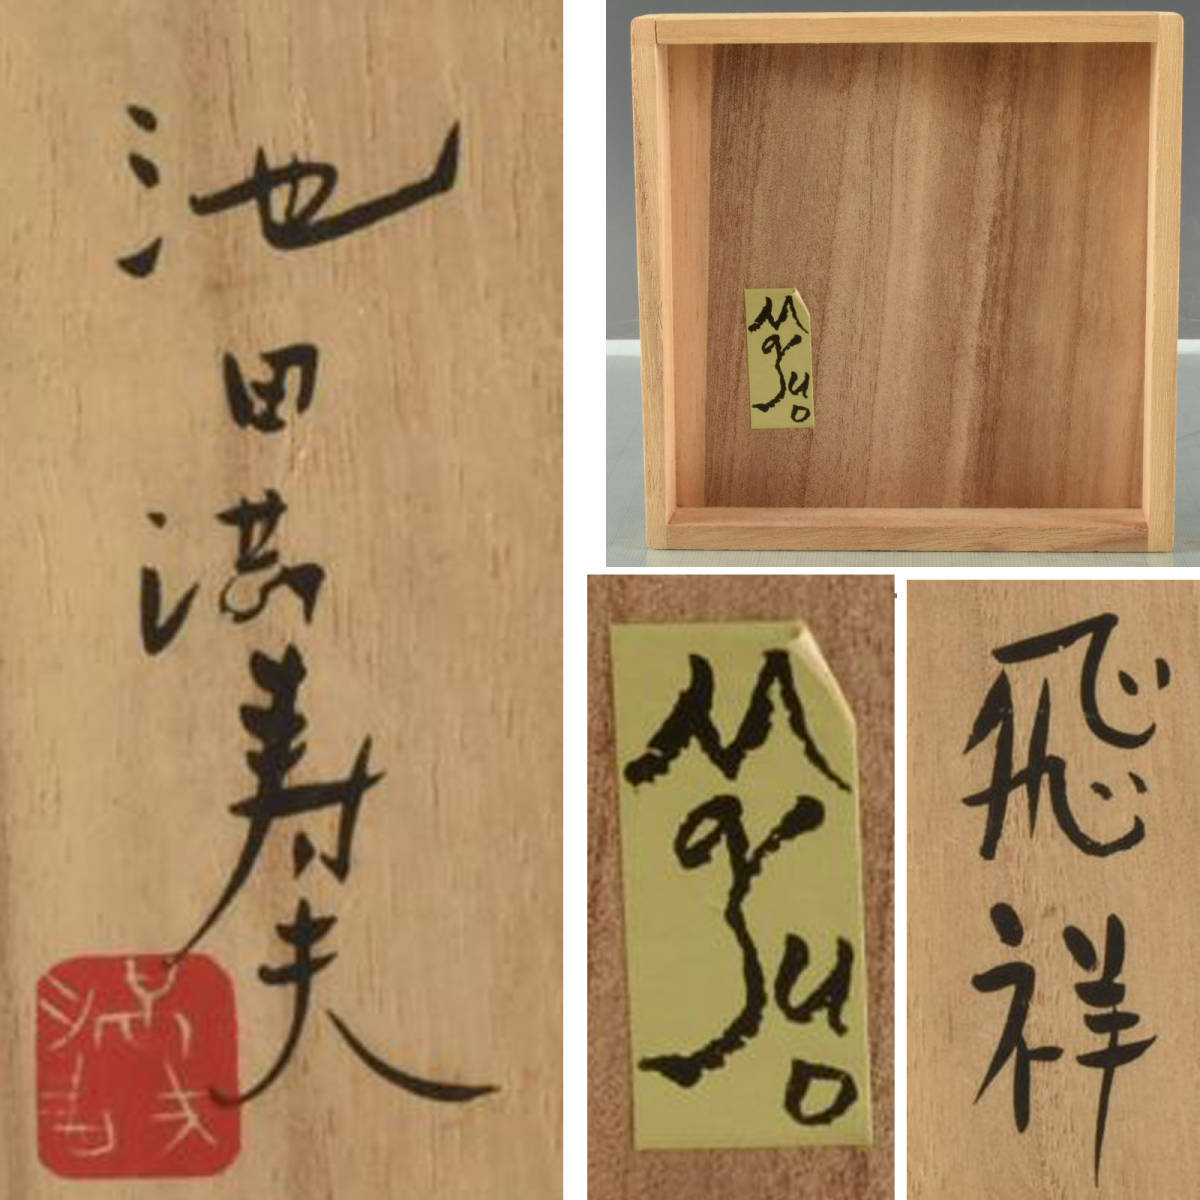 池田満寿夫
満寿夫
Masuo
Masuo
飛祥